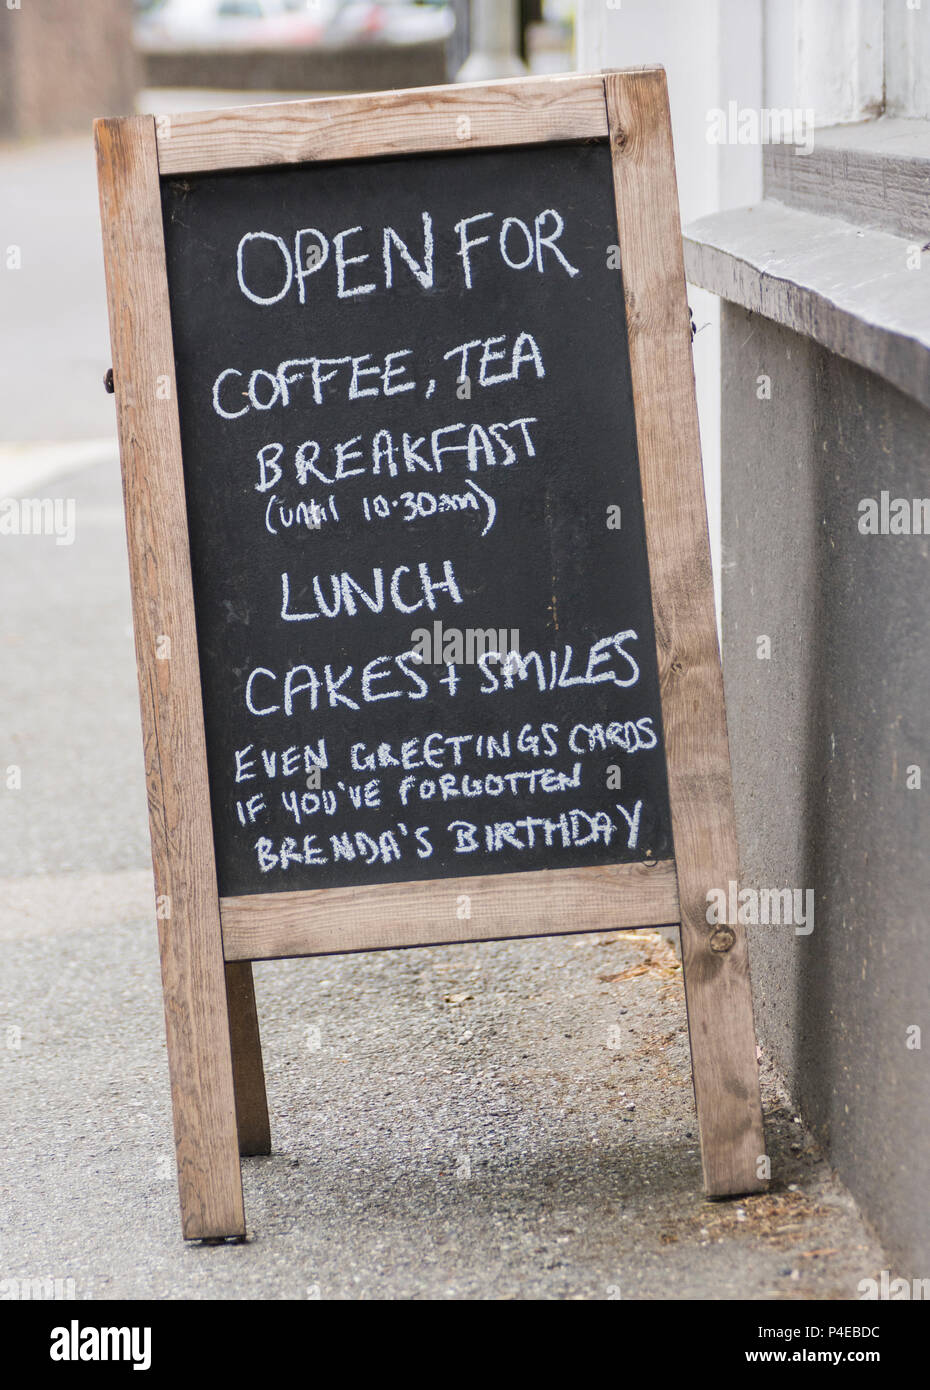 OPEN FOR
COFFEE, TEA
BREAKFAST
(until 10.30am)
LUNCH
CAKES + SMILES
EVEN GREETINGS CARDS
IF YOU'VE FORGOTTEN
BRENDA'S BIRTHDAY
alamy
Image ID: P4EBDC
www.alamy.com